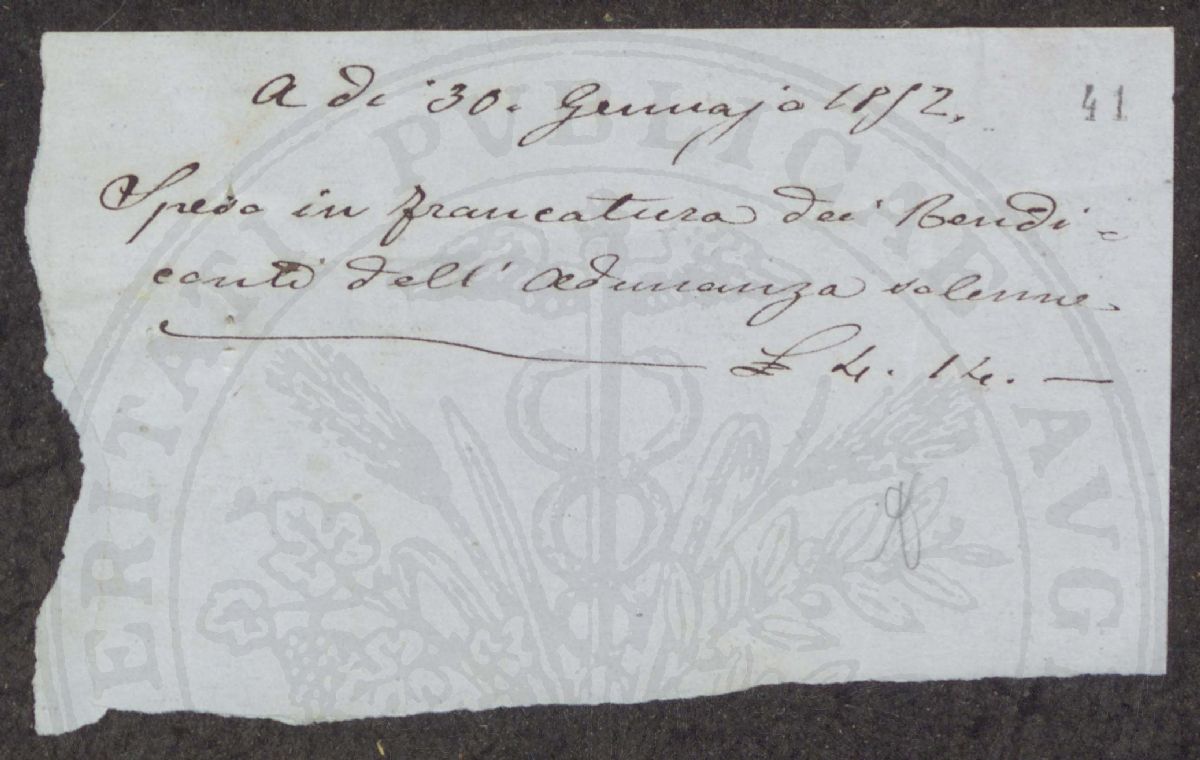 A dì 30. Gennajo 1852.
41
Speso in francatura dei Rendi=
conti dell' Adunanza solenne
£ 4. 14. —
PROSPERITATI PVBLICAE AVGENDAE